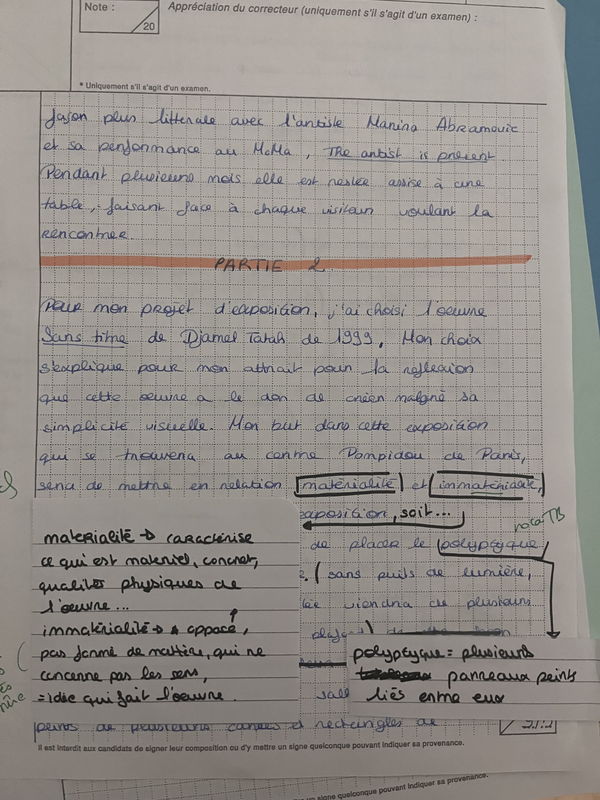 Note :
20
Appréciation du correcteur (uniquement s'il s'agit d'un examen) :
* Uniquement s'il s'agit d'un examen.
façon plus littérale avec l'artiste Marina Abramovic
et sa performance au MoMa, The artist is present
Pendant plusieurs mois elle est restée assise à une
table, faisant face à chaque visiteur voulant la
rencontrer.
PARTIE 2
Pour mon projet d'exposition, j'ai choisi l'oeuvre
Sans titre de Djamel Tatah de 1999, Mon choix
s'explique pour mon attrait pour la réflexion
que cette oeuvre a le don de créer malgré sa
simplicité visuelle. Mon but dans cette exposition
qui se trouvera au centre Pompidou de Paris,
sera de mettre en relation matérialité et immatérialité,
exposition, soit...
note TB
de placer le polyptyque
(sans puits de lumière,
viendra de plusieurs
materialité → caractérise
ce qui est materiel, concret,
qualités physiques de
l'oeuvre...
immatérialité → opposé,
pas formé de matière, qui ne
concerne pas les sens,
= idée qui fait l'oeuvre.
polyptyque = plusieurs
panneaux peints
liés entre eux
sall
peints de plusieurs carrés et rectangles de
Il est interdit aux candidats de signer leur composition ou d'y mettre un signe quelconque pouvant indiquer sa provenance.
un signe quelconque pouvant indiquer sa provenance.